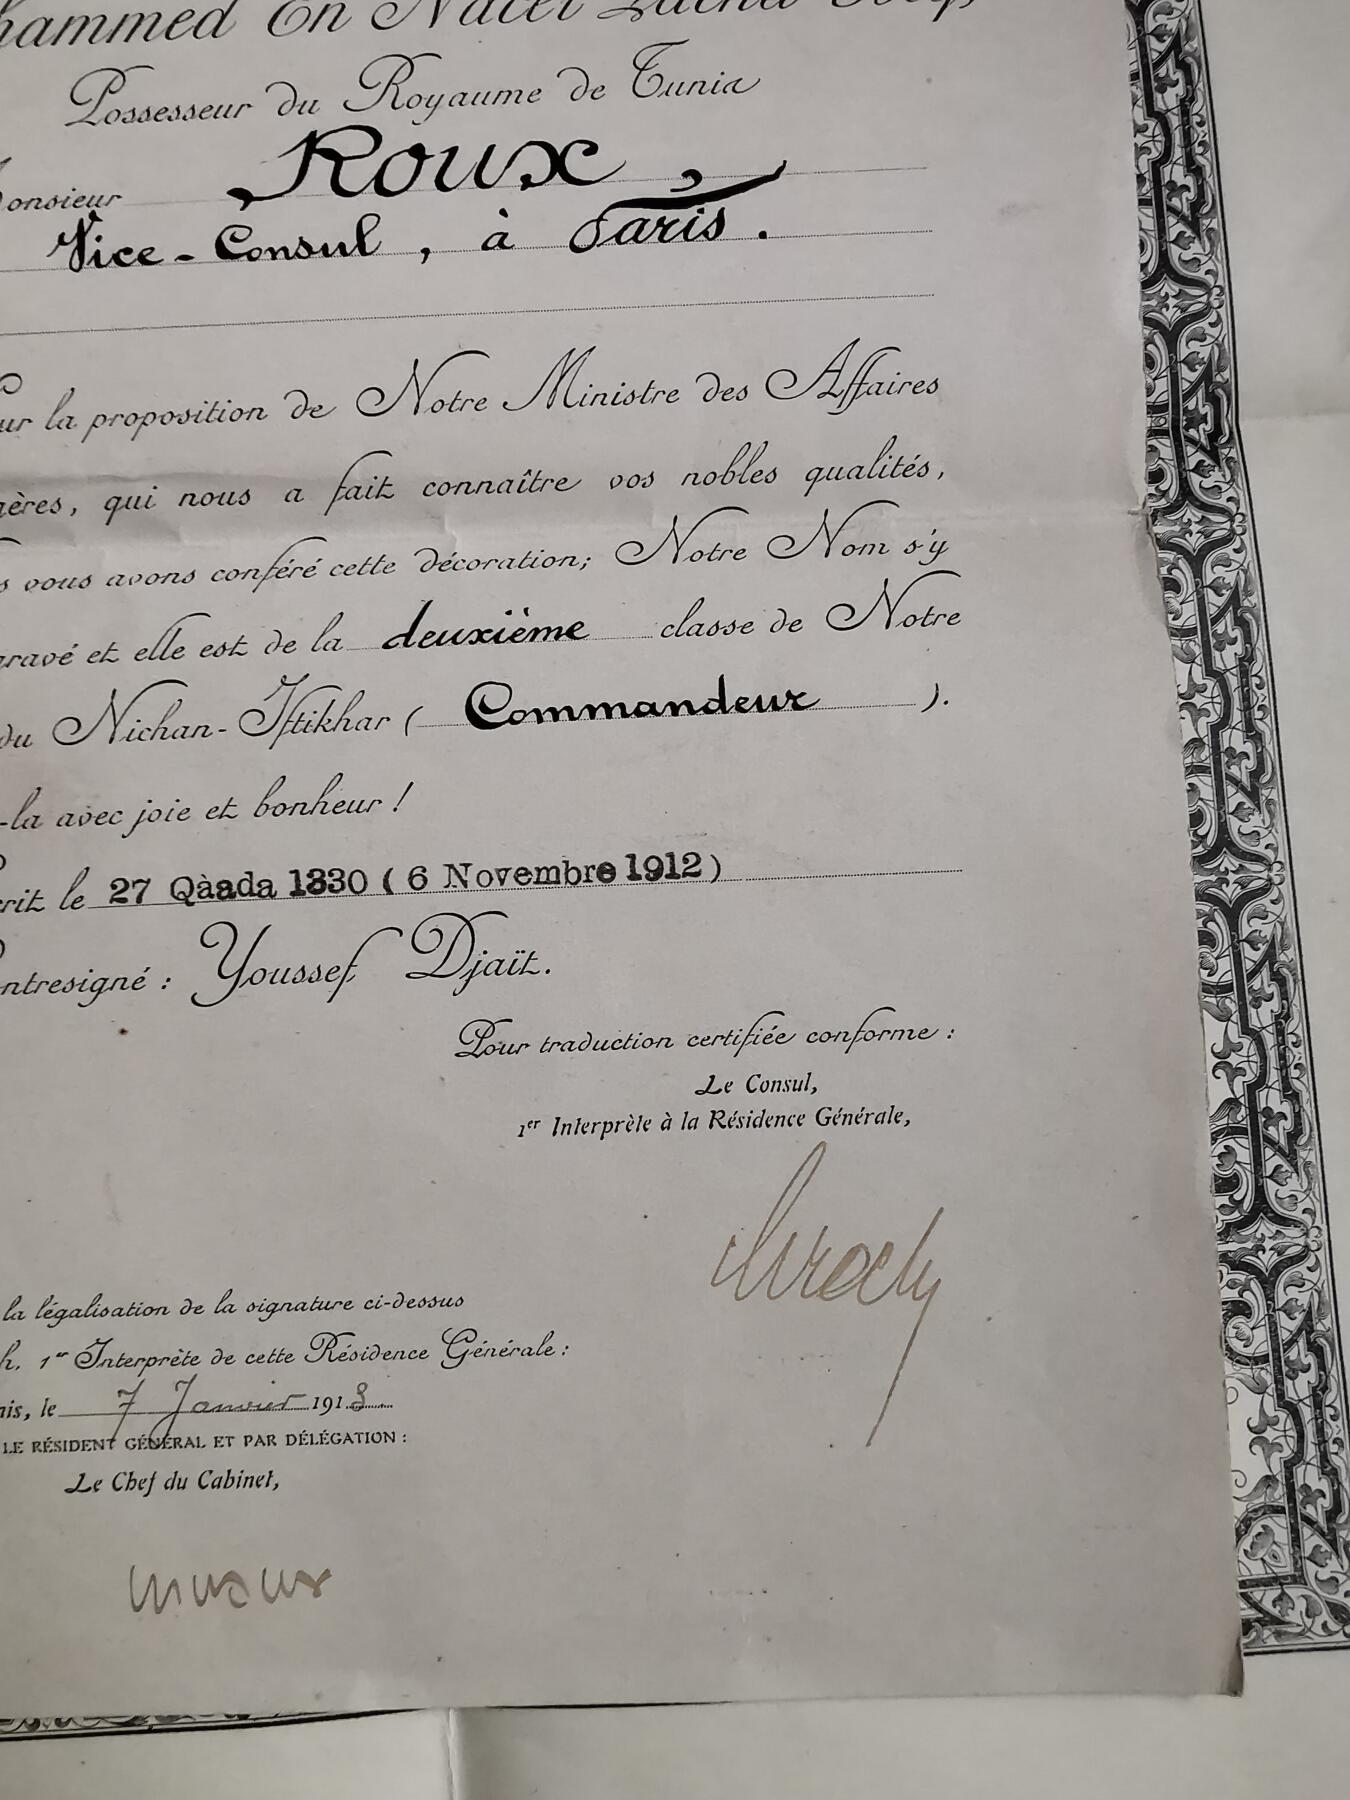 hammed En Nacer Pacha Bey,
Possesseur du Royaume de Tunis
Monsieur Roux,
Vice-Consul, à Paris.
ur la proposition de Notre Ministre des Affaires
gères, qui nous a fait connaître vos nobles qualités,
s vous avons conféré cette décoration; Notre Nom s'y
gravé et elle est de la deuxième classe de Notre
du Nichan-Iftikhar ( Commandeur ).
-la avec joie et bonheur !
crit le 27 Qàada 1330 ( 6 Novembre 1912 )
ontresigné : Youssef Djaït.
Pour traduction certifiée conforme :
Le Consul,
1er Interprète à la Résidence Générale,
la légalisation de la signature ci-dessus
h. 1er Interprète de cette Résidence Générale :
nis, le 7 Janvier 1913
LE RÉSIDENT GÉNÉRAL ET PAR DÉLÉGATION :
Le Chef du Cabinet,